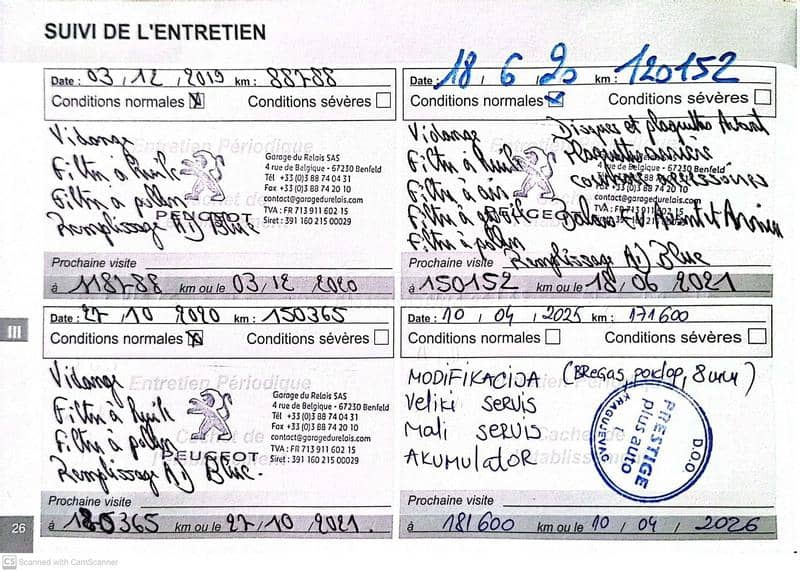 SUIVI DE L'ENTRETIEN
Date : 03 / 12 / 2019 km : 88788
Conditions normales Conditions sévères
Entretien Périodique
Vidange
Filtre à huile
Filtre à pollen
Remplissage Ad Blue
PEUGEOT
Garage du Relais SAS
4 rue de Belgique - 67230 Benfeld
Tél +33 (0)3 88 74 04 31
Fax +33 (0)3 88 74 20 10
contact@garagedurelais.com
TVA : FR 713 911 602 15
Siret : 391 160 215 00029
Prochaine visite
à 118788 km ou le 03 / 12 / 2020
Date : 18 / 6 / 20 km : 120152
Conditions normales Conditions sévères
Vidange
Filtre à huile
Filtre à air
Filtre à pollen
Disques et plaquettes Avant
Plaquettes arrière
Balais EV Avant et Arrière
Remplissage Ad Blue
PEUGEOT
4 rue de Belgique - 67230 Benfeld
+33 (0)3 88 74 20 10
contact@garagedurelais.com
TVA : FR 713 911 602 15
Siret : 391 160 215 00029
Prochaine visite
à 150152 km ou le 18 / 06 / 2021
III
Date : 27 / 10 / 2020 km : 150365
Conditions normales Conditions sévères
Entretien Périodique
Vidange
Filtre à huile
Filtre à pollen
Remplissage Ad Blue.
PEUGEOT
Garage du Relais SAS
4 rue de Belgique - 67230 Benfeld
Tél +33 (0)3 88 74 04 31
Fax +33 (0)3 88 74 20 10
contact@garagedurelais.com
TVA : FR 713 911 602 15
Siret : 391 160 215 00029
Prochaine visite
à 180365 km ou le 27 / 10 / 2021
Date : 10 / 04 / 2025 km : 171600
Conditions normales Conditions sévères
MODIFIKACIJA (BREGAS, poklop, 8 umm)
Veliki SERVIS
Mali SERVIS
AKUMULATOR
PRESTIGE
plus auto
D.O.O.
KRAGUJEVAC
Prochaine visite
à 181600 km ou le 10 / 04 / 2026
26
CS Scanned with CamScanner